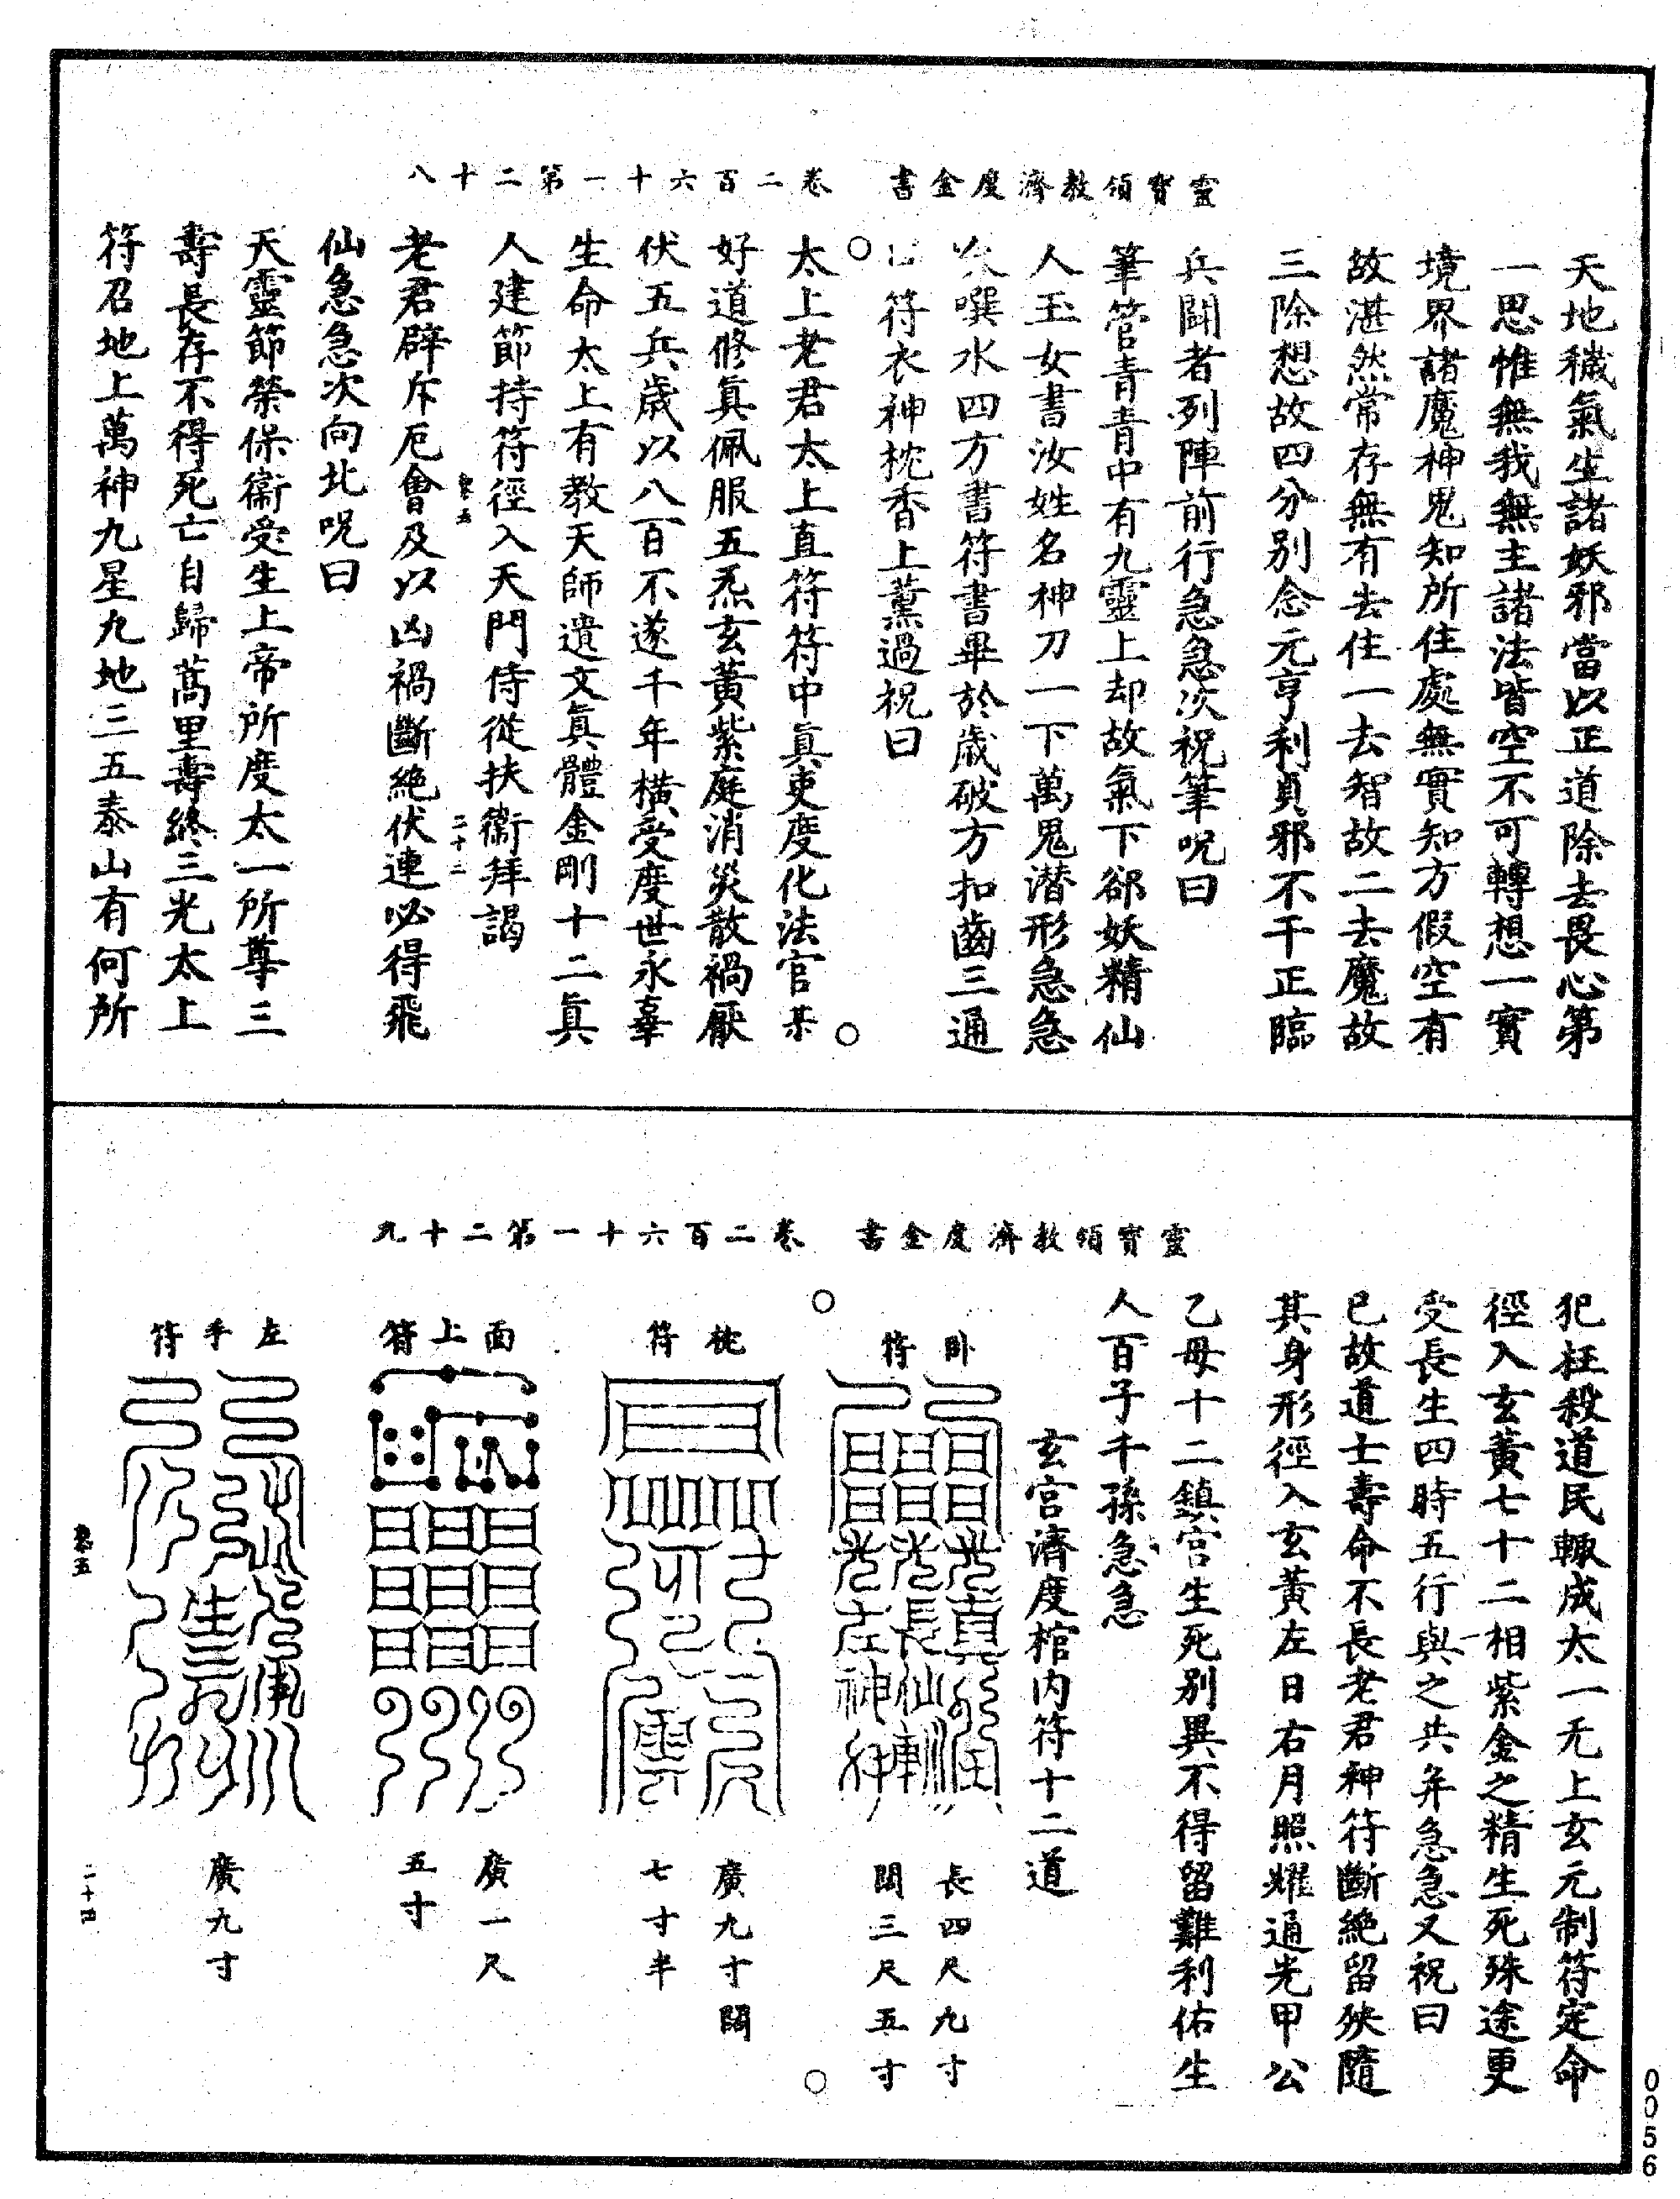 靈寶領教濟度金書　卷二百六十一第二十八
天地穢氣生諸妖邪當以正道除去畏心第
一思惟無我無主諸法皆空不可轉想一實
境界諸魔神鬼知所住處無實知方假空有
故湛然常存無有去住一去智故二去魔故
三除想故四分別念元亨利貞邪不干正臨
兵鬪者列陣前行急急次祝筆呪曰
筆管青青中有九靈上却故氣下郤妖精仙
人玉女書汝姓名神刀一下萬鬼潛形急急
次噀水四方書符書畢於歲破方扣齒三通
以符衣神枕香上薰過祝曰
太上老君太上直符符中真吏度化法官某
好道修真佩服五炁玄黃紫庭消災散禍厭
伏五兵歲以八百不遂千年橫受度世永辜
生命太上有教天師遺文真體金剛十二真
人建節持符徑入天門侍從扶衞拜謁
老君辟斥厄會及以凶禍斷絕伏連必得飛
仙急急次向北呪曰
天靈節榮保衞受生上帝所度太一所尊三
壽長存不得死亡自歸蒿里壽終三光太上
符召地上萬神九星九地三五泰山有何所
靈寶領教濟度金書　卷二百六十一第二十九
犯枉殺道民輙成太一无上玄元制符定命
徑入玄黃七十二相紫金之精生死殊途更
受長生四時五行與之共年急急又祝曰
已故道士壽命不長老君神符斷絕留殃隨
其身形徑入玄黃左日右月照耀通光甲公
乙母十二鎮宮生死別異不得留難利佑生
人百子千孫急急
玄宮濟度棺內符十二道
臥符
長四尺九寸
闊三尺五寸
枕符
廣九寸闊
七寸半
面上符
廣一尺
五寸
左手符
廣九寸
二十四
0056